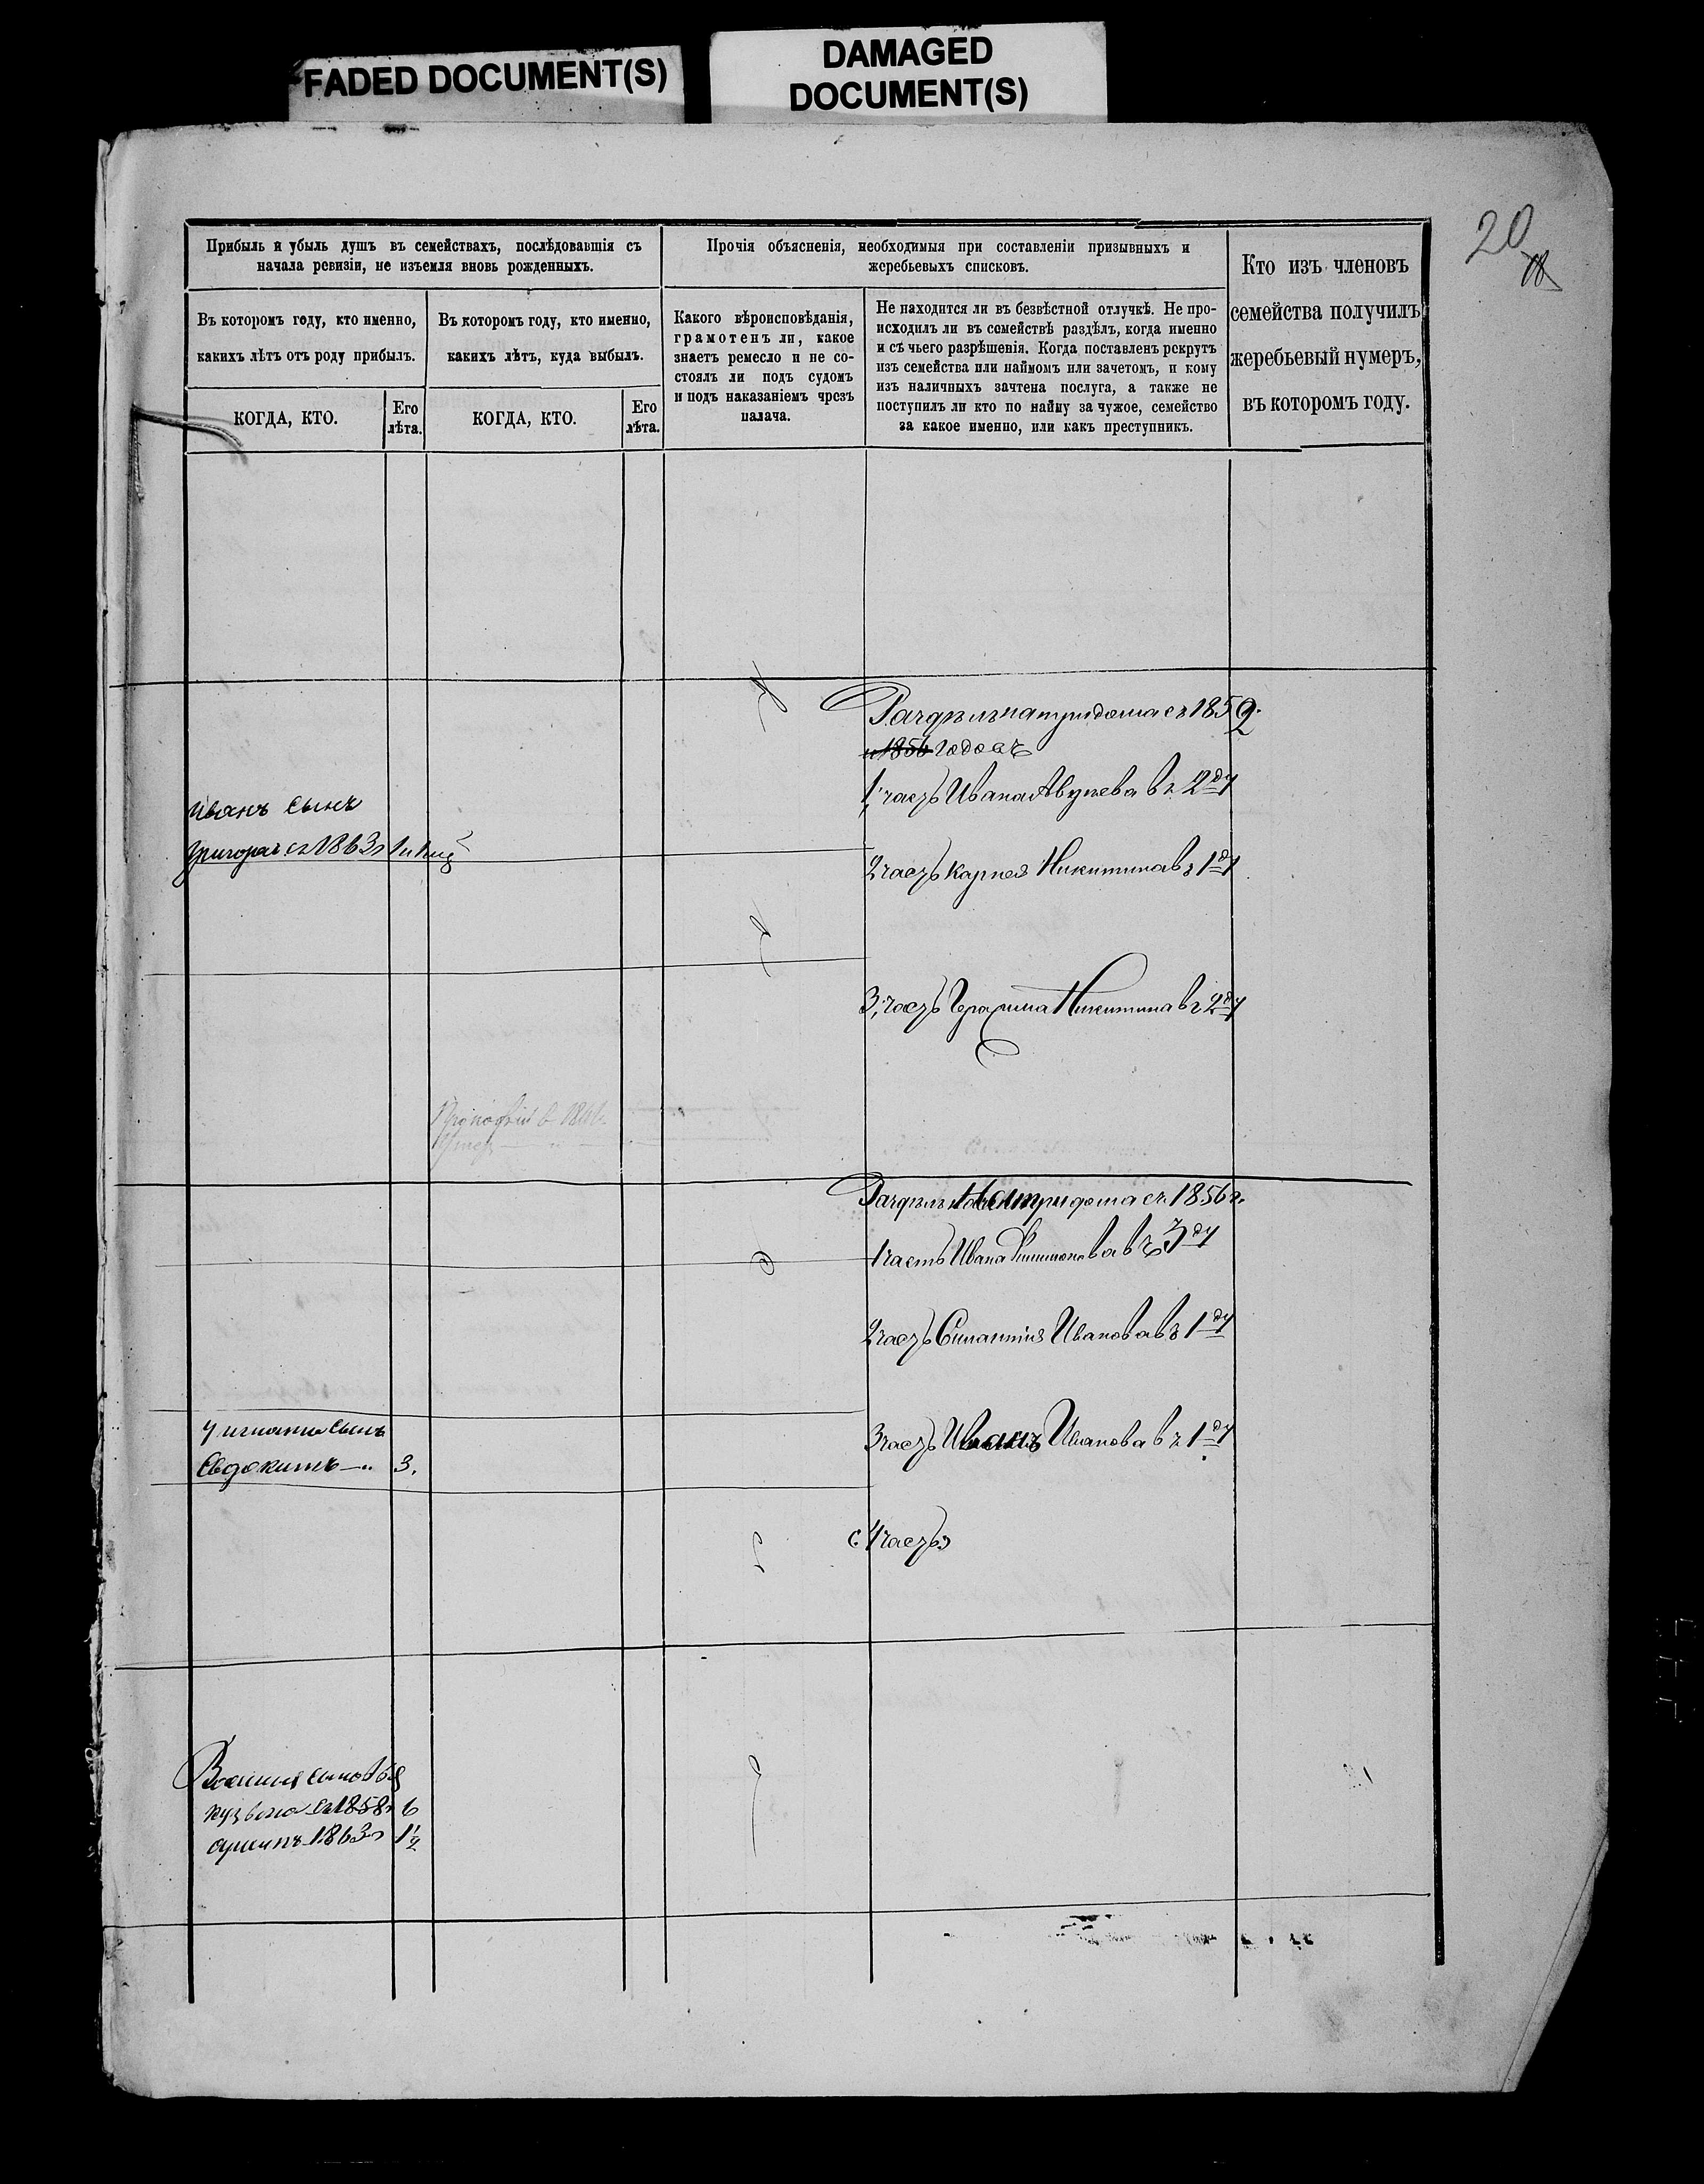 FADED DOCUMENT(S)
DAMAGED
DOCUMENT(S)
20
18
Прибыль и убыль душъ въ семействахъ, послѣдовавшія съ
начала ревизіи, не изъемля вновь рожденныхъ.
Прочія объясненія, необходимыя при составленіи призывныхъ и
жеребьевыхъ списковъ.
Кто изъ членовъ
семейства получилъ
жеребьевый нумеръ,
въ которомъ году.
Въ которомъ году, кто именно,
какихъ лѣтъ отъ роду прибылъ.
Въ которомъ году, кто именно,
какихъ лѣтъ, куда выбылъ.
Какого вѣроисповѣданія,
грамотенъ ли, какое
знаетъ ремесло и не со-
стоялъ ли подъ судомъ
и подъ наказаніемъ чрезъ
палача.
Не находится ли въ безвѣстной отлучкѣ. Не про-
исходилъ ли въ семействѣ раздѣлъ, когда именно
и съ чьего разрѣшенія. Когда поставленъ рекрутъ
изъ семейства или наймомъ или зачетомъ, и кому
изъ наличныхъ зачтена послуга, а также не
поступилъ ли кто по найму за чужое, семейство
за какое именно, или какъ преступникъ.
КОГДА, КТО.
Его
лѣта.
КОГДА, КТО.
Его
лѣта.
Раздѣлъ натридома съ 1859
и 1856 годовъ
1, часть Ивана в 2ду
Иванъ сынъ
Григорій съ 1863г
2 часть Карпея Никитина въ 1ду
3, часть Герасима Никитина въ 2ду
Прокофій в
Умер
Раздѣлъ натридома съ 1856г.
1 часть Ивана въ 3ду
2 часть Иванова въ 1ду
У игнатия сынъ
Евдокимъ 3.
3 часть Иванъ Иванова въ 1ду
4 часть
сыновья
кузьма съ 1858г 6
1863г 1½